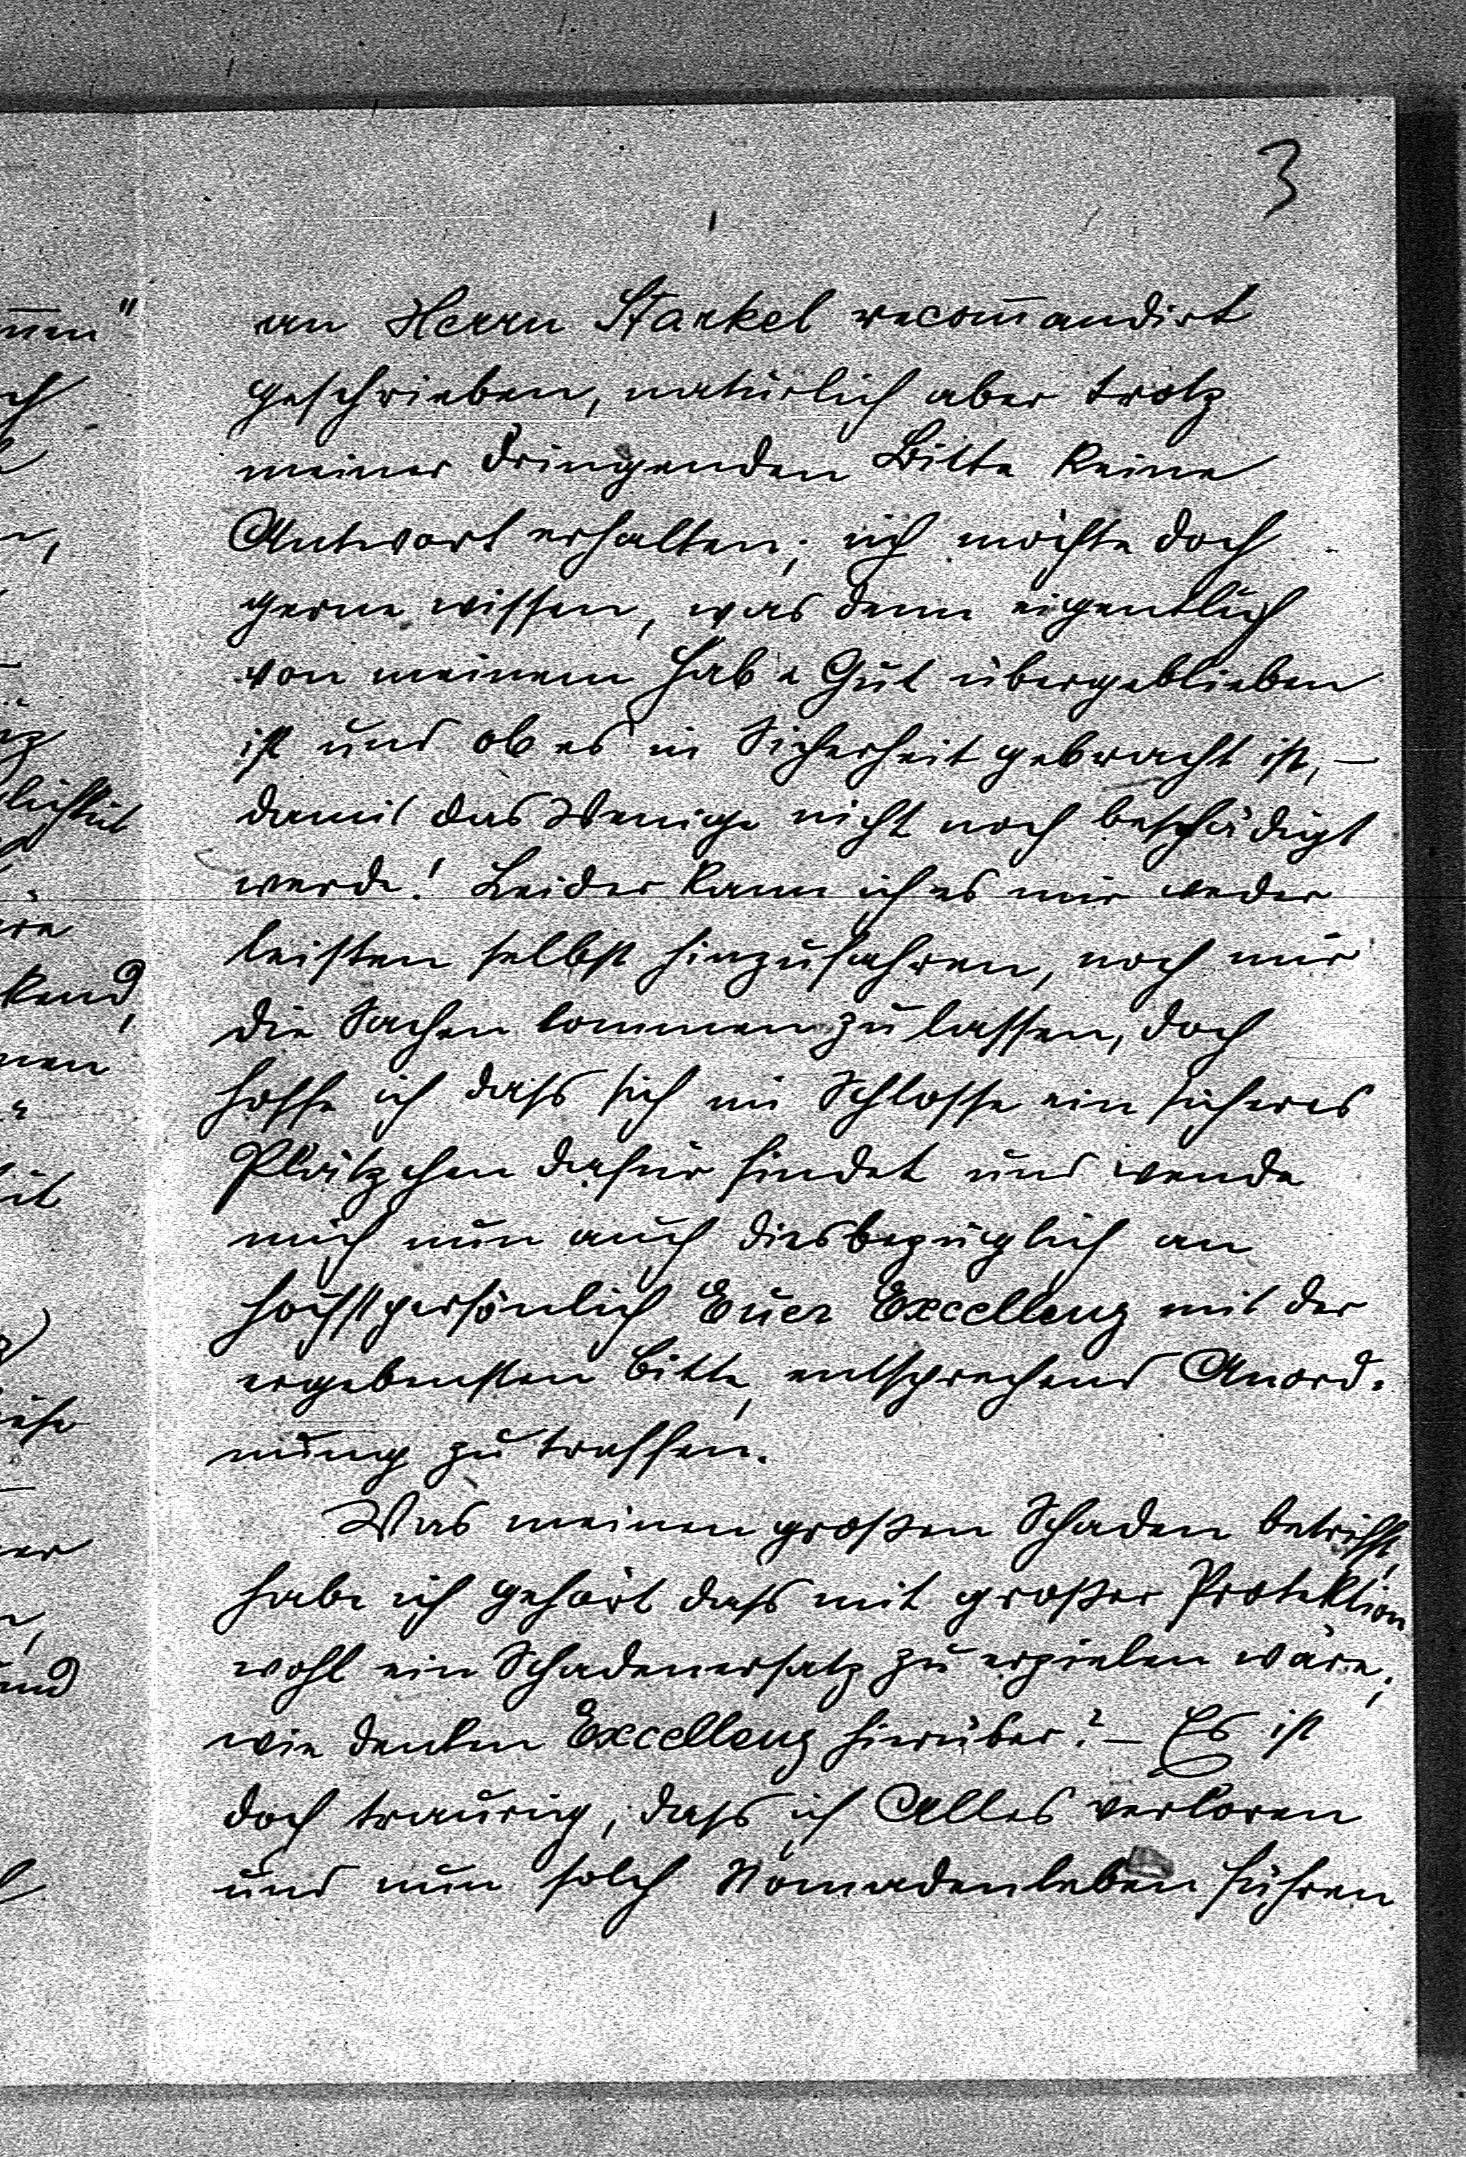 3
an Herrn Starkel recom̅andirt
geschrieben, natürlich aber trotz
meiner dringenden Bitte keine
Antwort erhalten; ich möchte doch
gerne wissen, was denn eigentlich
von meinem Hab & Gut übergeblieben
ist und ob es in Sicherheit gebracht ist, –
damit das Wenige nicht noch beschädigt
werde! Leider kann ich es mir weder
leisten selbst hinzufahren, noch mir
die Sachen kommen zu lassen, doch
hoffe ich dass sich im Schlosse ein sicheres
Plätzchen dafür findet und wende
mich nun auch diesbezüglich an
höchstpersönlich Euer Excellenz mit der
ergebensten Bitte, entsprechend Anord-
nung zu treffen.
Was meinen großen Schaden betrifft,
habe ich gehört dass mit großer Protektion
wohl ein Schadenersatz zu erzielen wäre;
wie denken Excellenz hierüber? – Es ist
doch traurig, dass ich Alles verloren
und nun solch Nomadenleben führen